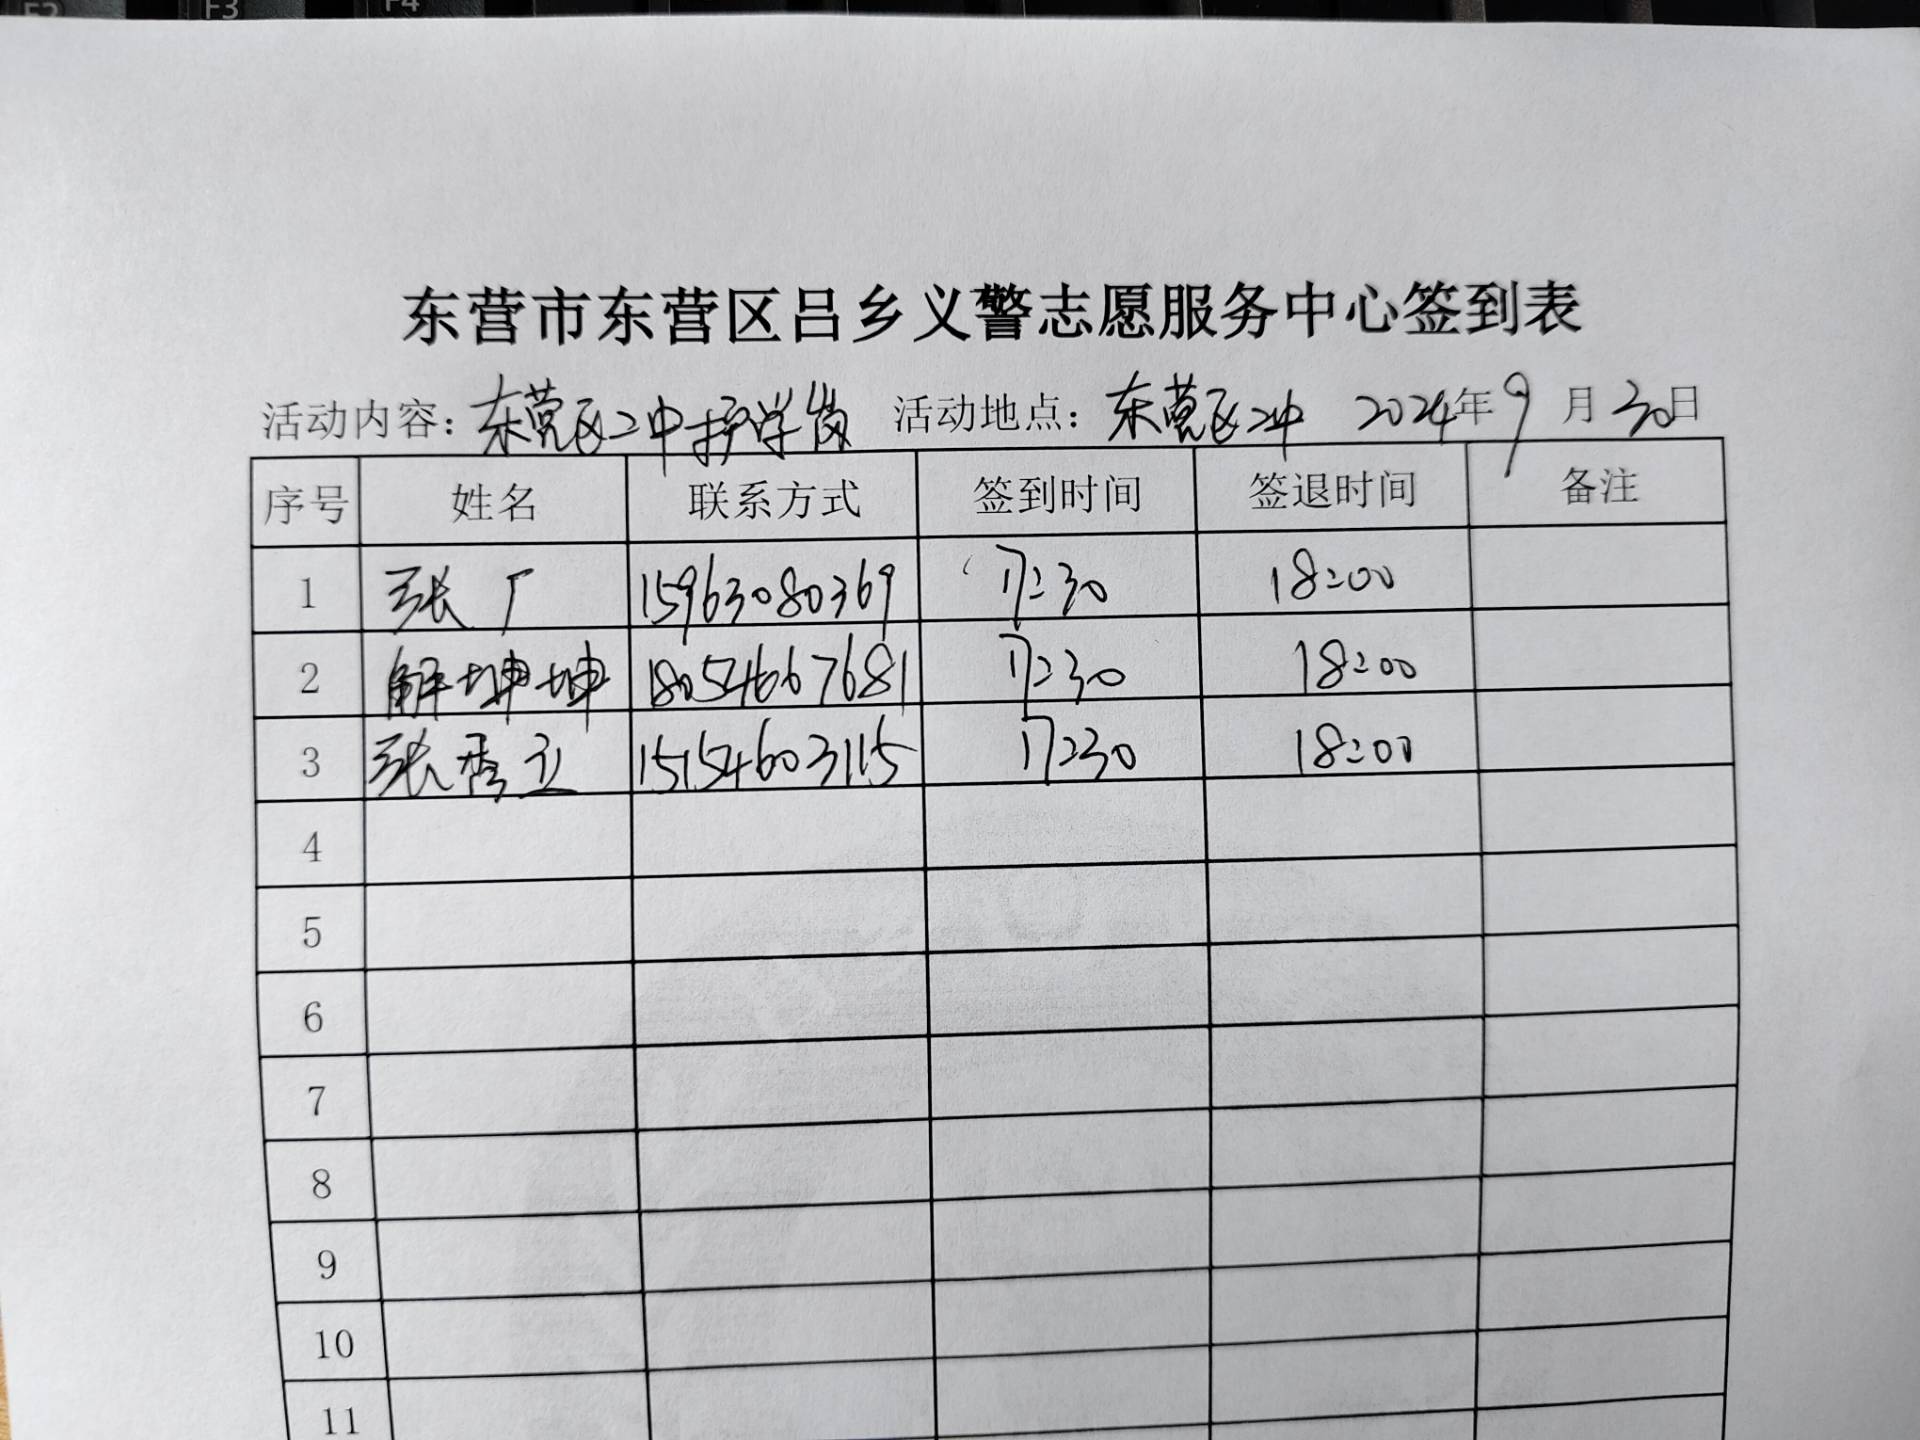 F2 F3 F4
东营市东营区吕乡义警志愿服务中心签到表
活动内容：东营区二中护学岗 活动地点：东营区二中 2024年9月30日
序号 姓名 联系方式 签到时间 签退时间 备注
1 张广 15963080369 17:30 18:00
2 解坤坤 18054667681 17:30 18:00
3 张秀立 15154603115 17:30 18:00
4
5
6
7
8
9
10
11